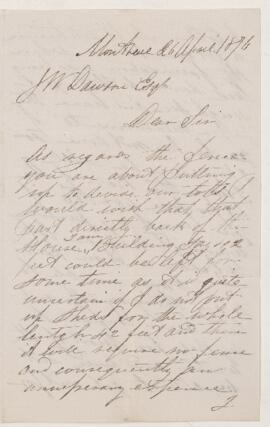 Montreal 26 April 1876
J W Dawson Esqr
Dear Sir
As regards the fence
you are about putting
up to devide our lots I
would wish that that
part directly back of the
House I am Building say 42
feet could be left for
some time as it is quite
uncertain if I do not put
up sheds for the whole
length 42 feet and then
it will require no fence
and consequently an
unnecessary expense
I